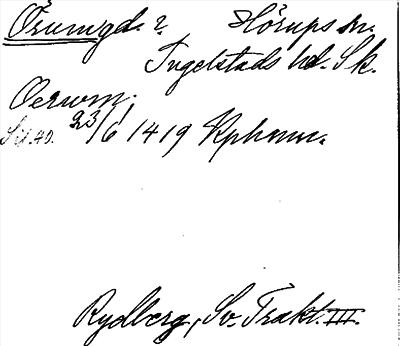 Örumgd. ? Hörups sn.
Ingelstads hd. Sk.
Oerwm.
23/6 1419 Kphamn.
Rydberg, Sv. Trakt. III.